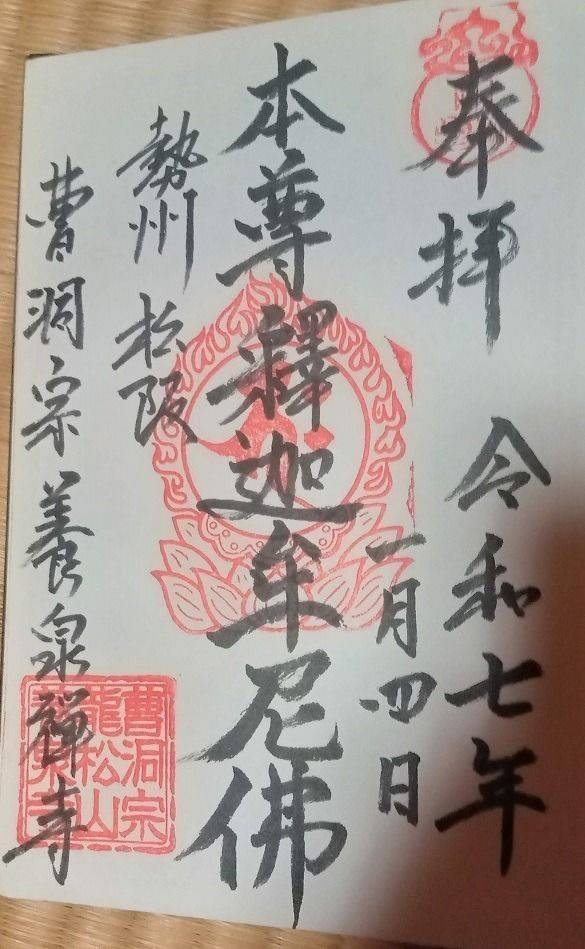 奉拝
令和七年
一月四日
本尊釋迦牟尼佛
勢州 松阪
曹洞宗養泉禅寺
曹洞宗
龍松山